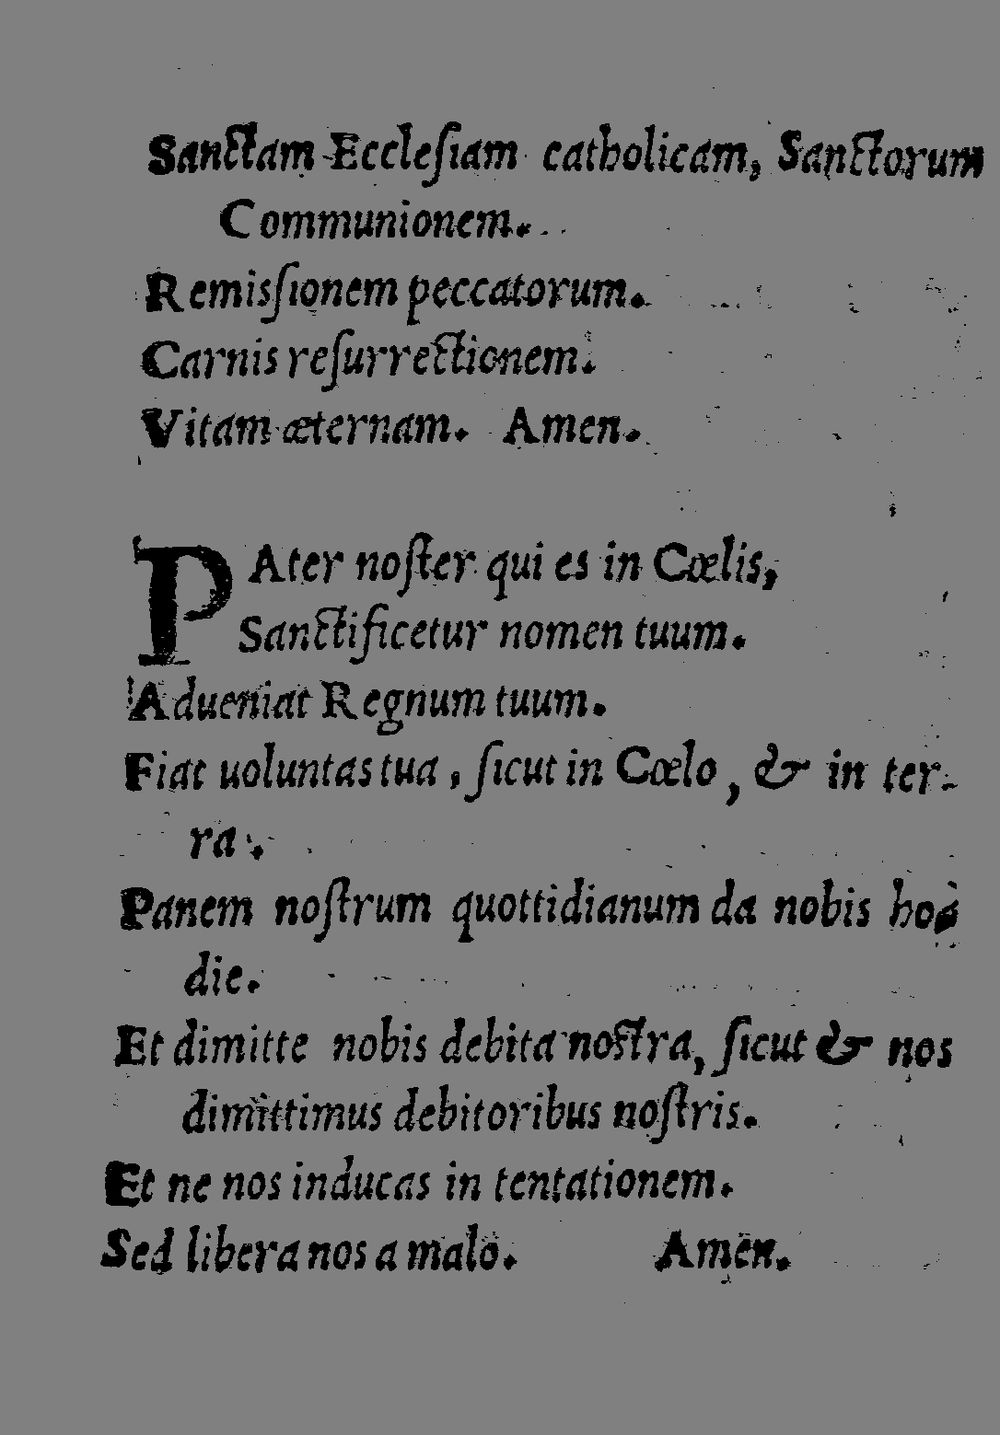 Sanctam Eccleſiam catholicam, Sanctorum
Communionem.
Remisſionem peccatorum.
Carnis reſurrectionem.
Vitam æternam. Amen.
PAter noſter qui es in Cœlis,
Sanctificetur nomen tuum.
Adueniat Regnum tuum.
Fiat uoluntas tua, ſicut in Cœlo, & in ter-
ra.
Panem noſtrum quottidianum da nobis ho-
die.
Et dimitte nobis debita noſtra, ſicut & nos
dimittimus debitoribus noſtris.
Et ne nos inducas in tentationem.
Sed libera nos a malo. Amen.